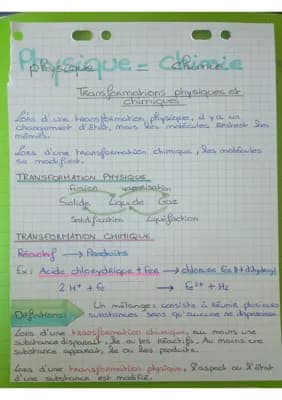 Physique - Chimie
Physique Chimie
Transformations physiques et
chimiques
Lors d'une transformation physique, il y a un
changement d'état, mais les molécules restent les
mêmes.
Lors d'une transformation chimique, les molécules
se modifient.
TRANSFORMATION PHYSIQUE
Fusion vaporisation
Solide Liquide Gaz
Solidification Liquéfaction
TRANSFORMATION CHIMIQUE
Réactif → Produits
Ex: Acide chlorydrique + Fer → chlorure fer II + dihydrogène
2 H⁺ + Fe → Fe²⁺ + H₂
Un mélange: consiste à réunir plusieurs
Définitions substances sans qu'aucune ne disparaisse.
Lors d'une transformation chimique, au moins une
substance disparait, le ou les réactifs. Au moins une
substance apparait, le ou les produits.
Lors d'une transformation physique, l'aspect ou l'état
d'une substance est modifié.